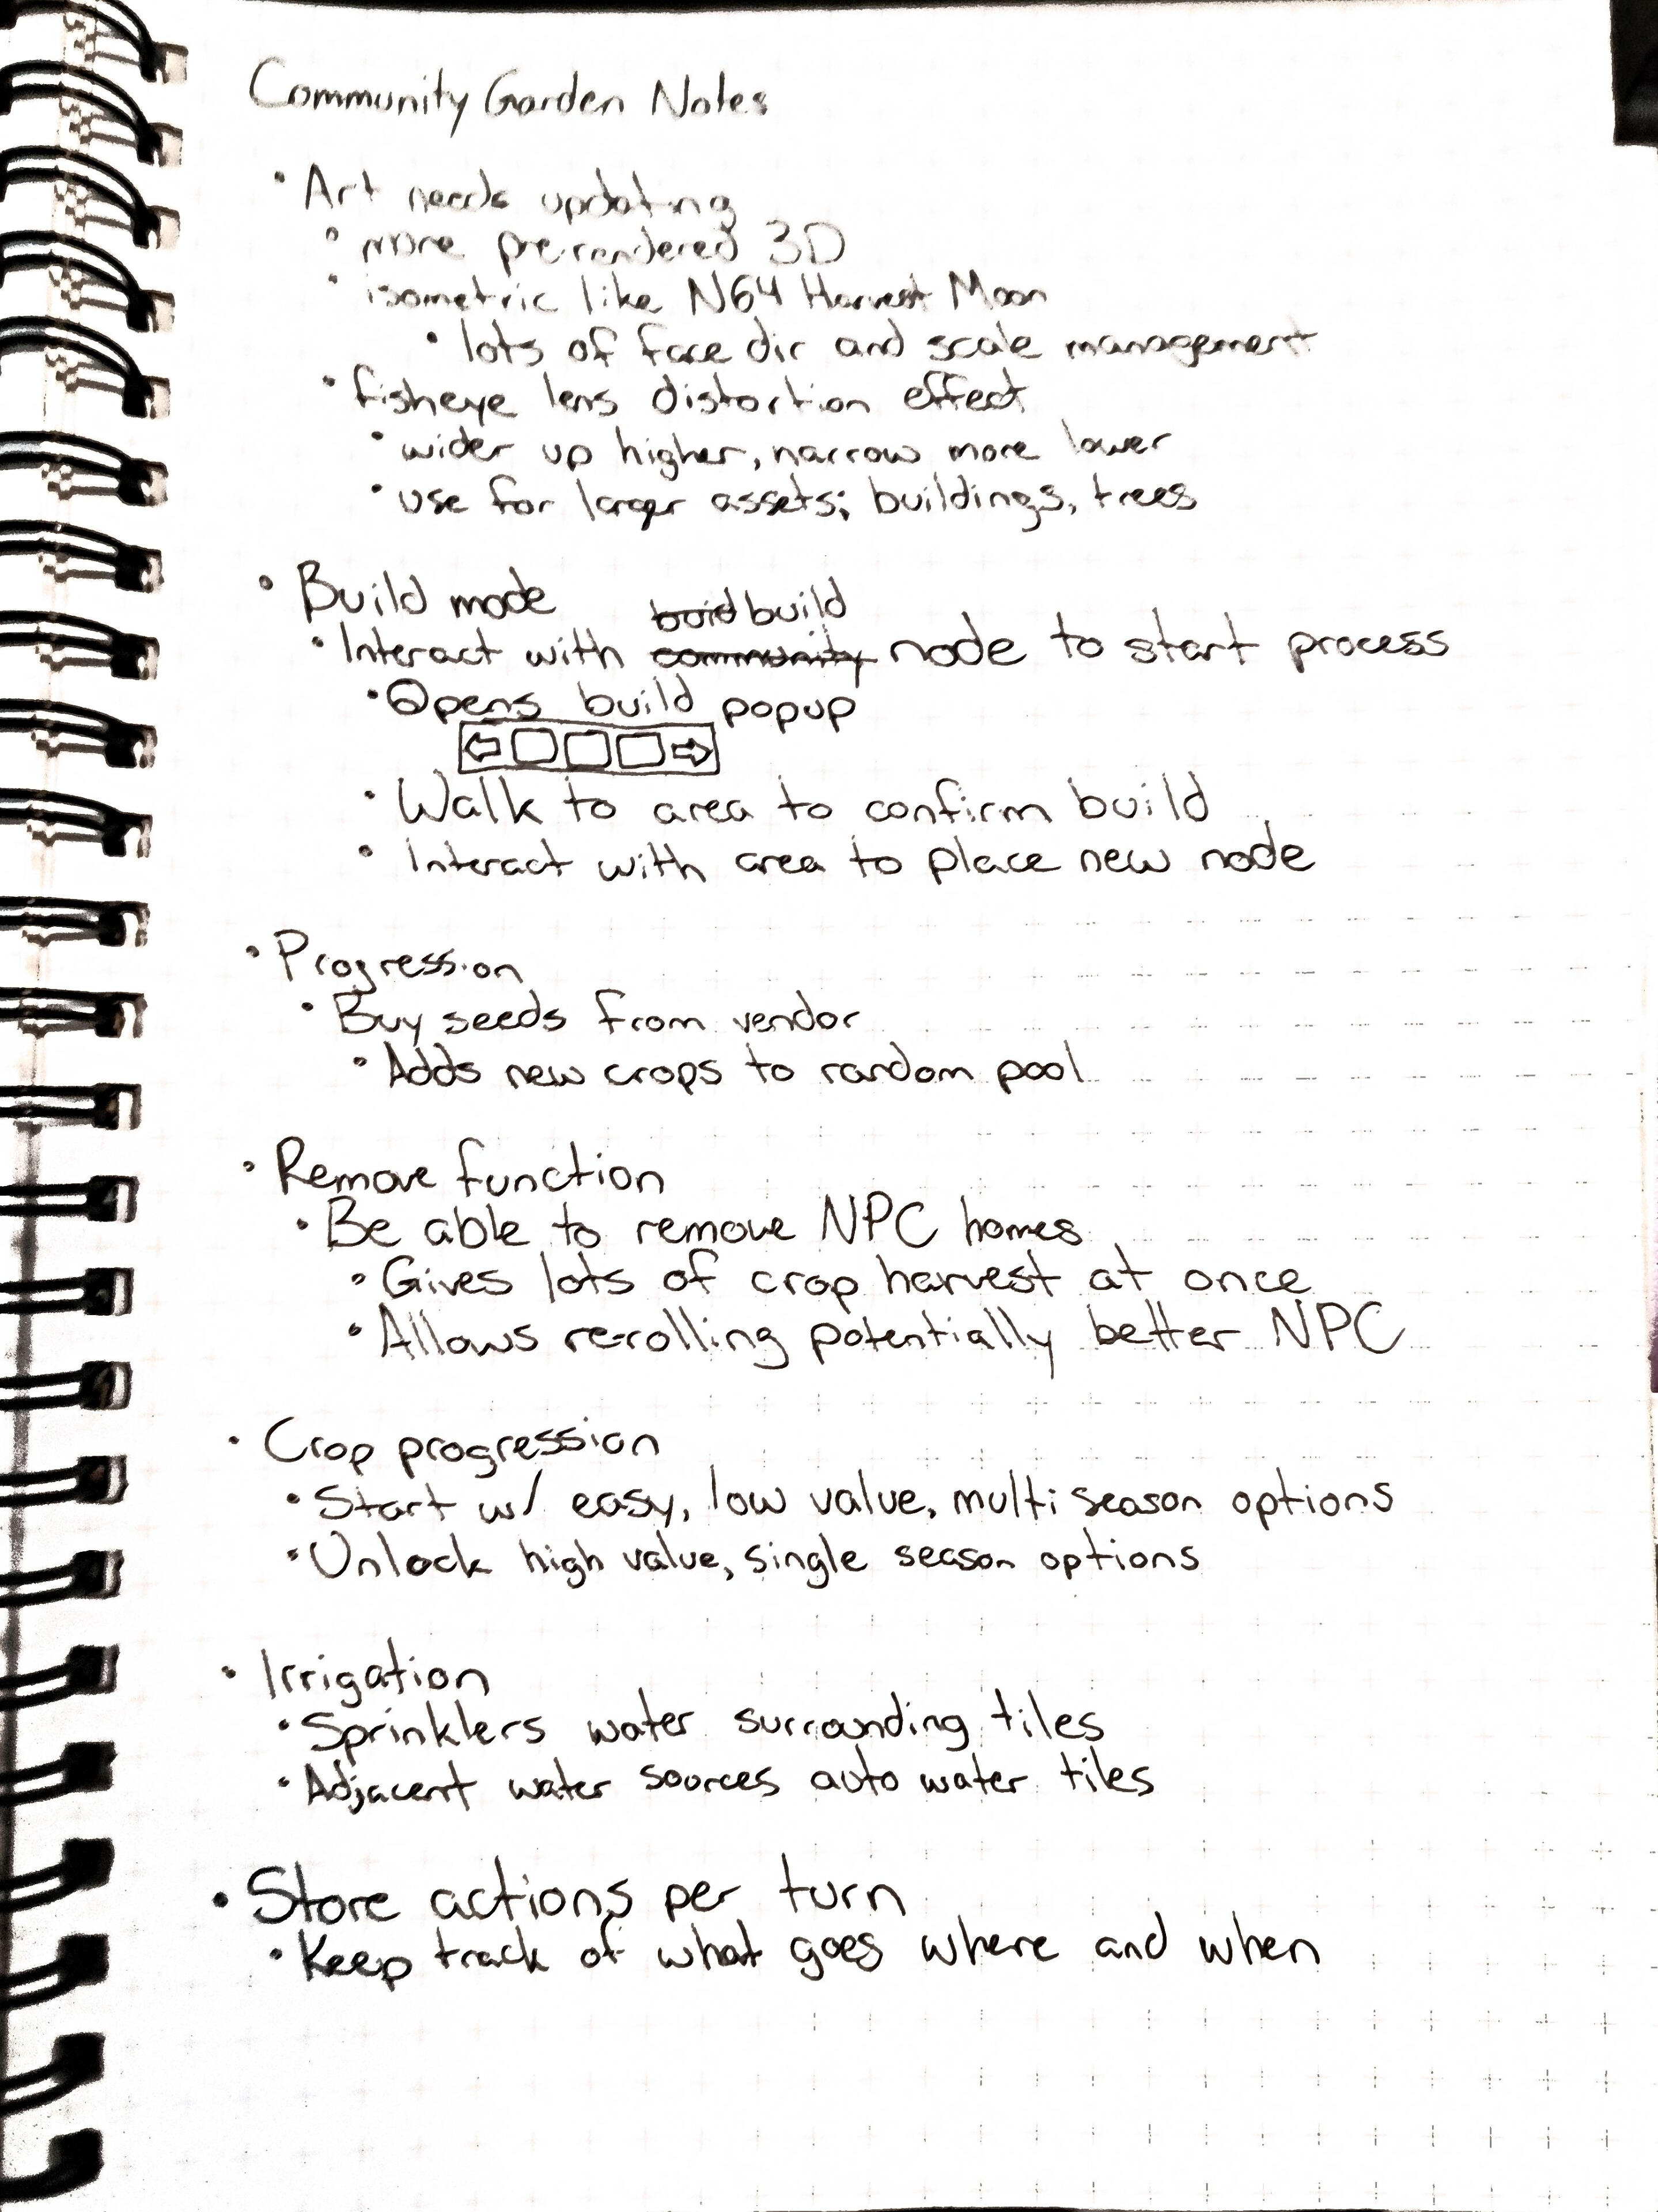 Community Garden Notes
• Art needs updating
• more prerendered 3D
• isometric like N64 Harvest Moon
• lots of face dir and scale management
• fisheye lens distortion effect
• wider up higher, narrow more lower
• use for larger assets; buildings, trees
• Build mode
buid build
• Interact with community node to start process
• Opens build popup
• Walk to area to confirm build
• Interact with area to place new node
• Progression
• Buy seeds from vendor
• Adds new crops to random pool
• Remove function
• Be able to remove NPC homes
• Gives lots of crop harvest at once
• Allows re-rolling potentially better NPC
• Crop progression
• Start w/ easy, low value, multi season options
• Unlock high value, single season options
• Irrigation
• Sprinklers water surrounding tiles
• Adjacent water sources auto water tiles
• Store actions per turn
• Keep track of what goes where and when